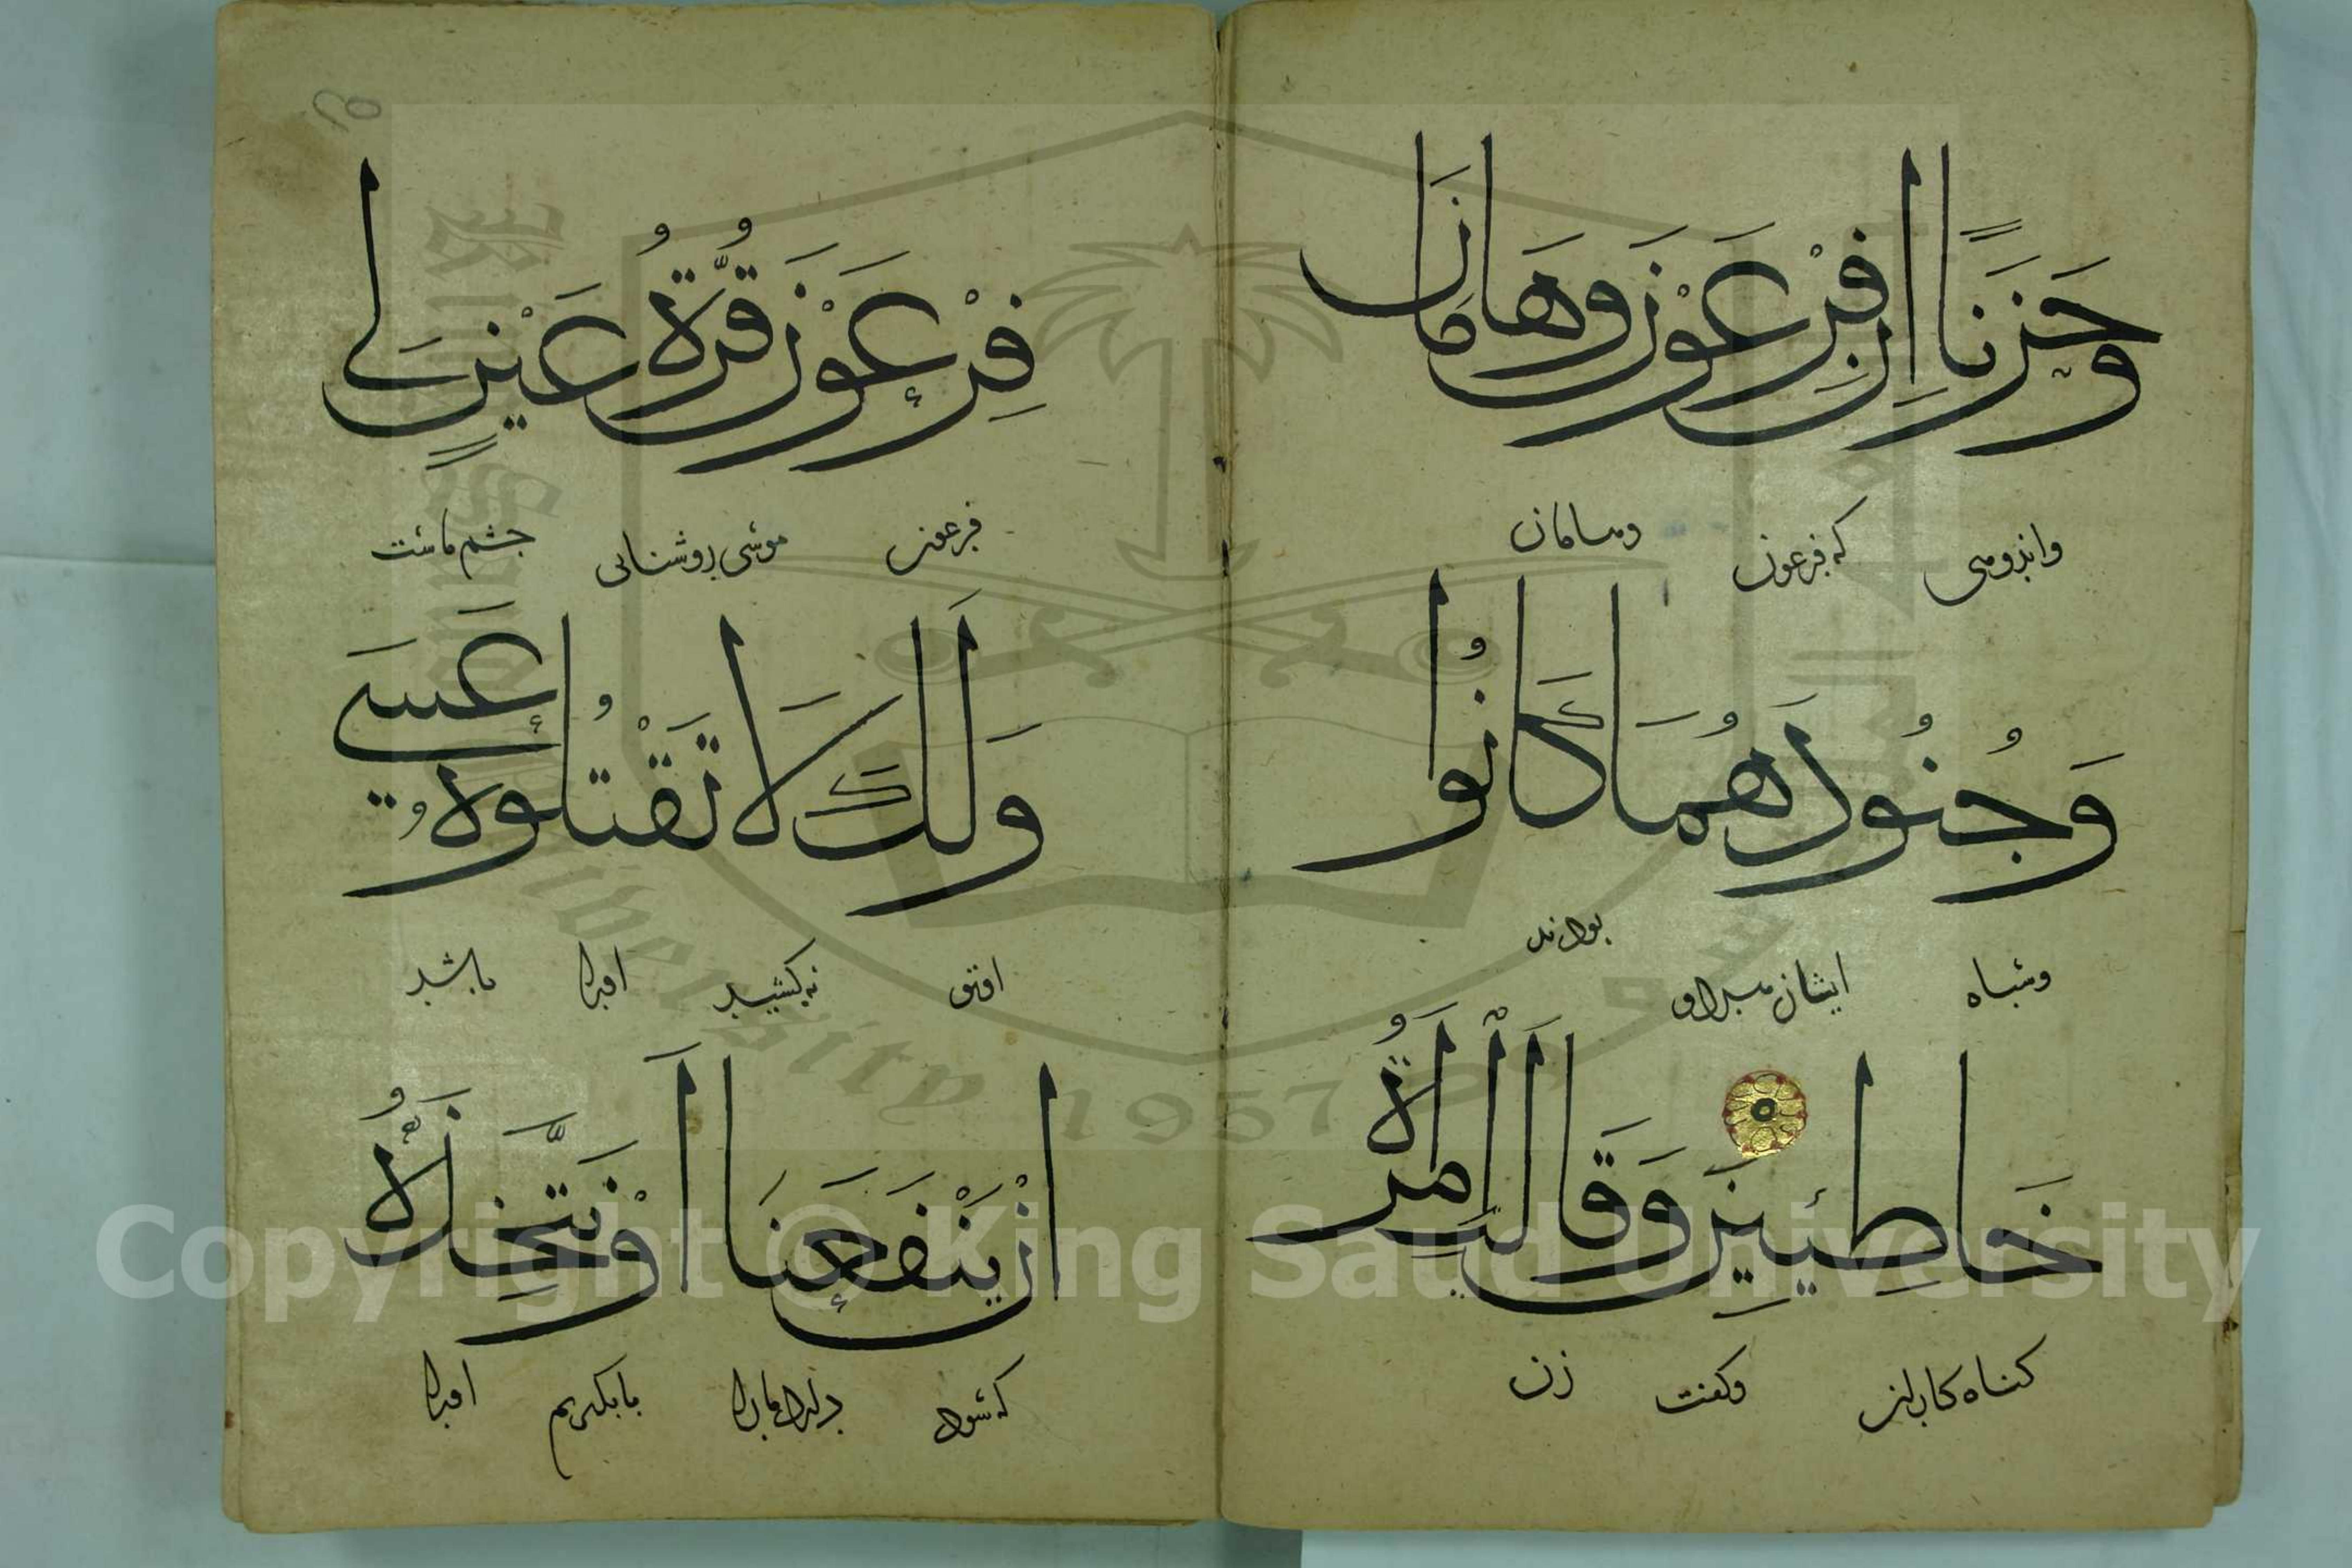 وَحَزَنًا اِنَّ فِرْعَوْنَ وَهَامَانَ
واندوهی که فرعون وهامان
وَجُنُودَهُمَا كَانُوا
وسپاه ایشان بودند
خَاطِئِينَ وَقَالَتِ امْرَاَةُ
کناه کاران وکفت زن
فِرْعَوْنَ قُرَّةُ عَيْنٍ لِي
فرعون موسی روشنایی چشم ماست
وَلَكَ لَا تَقْتُلُوهُ عَسَى
نه کشید اورا باشد
اَنْ يَنْفَعَنَا اَوْ نَتَّخِذَهُ
که سود مارا یا بکیریم اورا
Copyright © King Saud University
King Saud University 1957